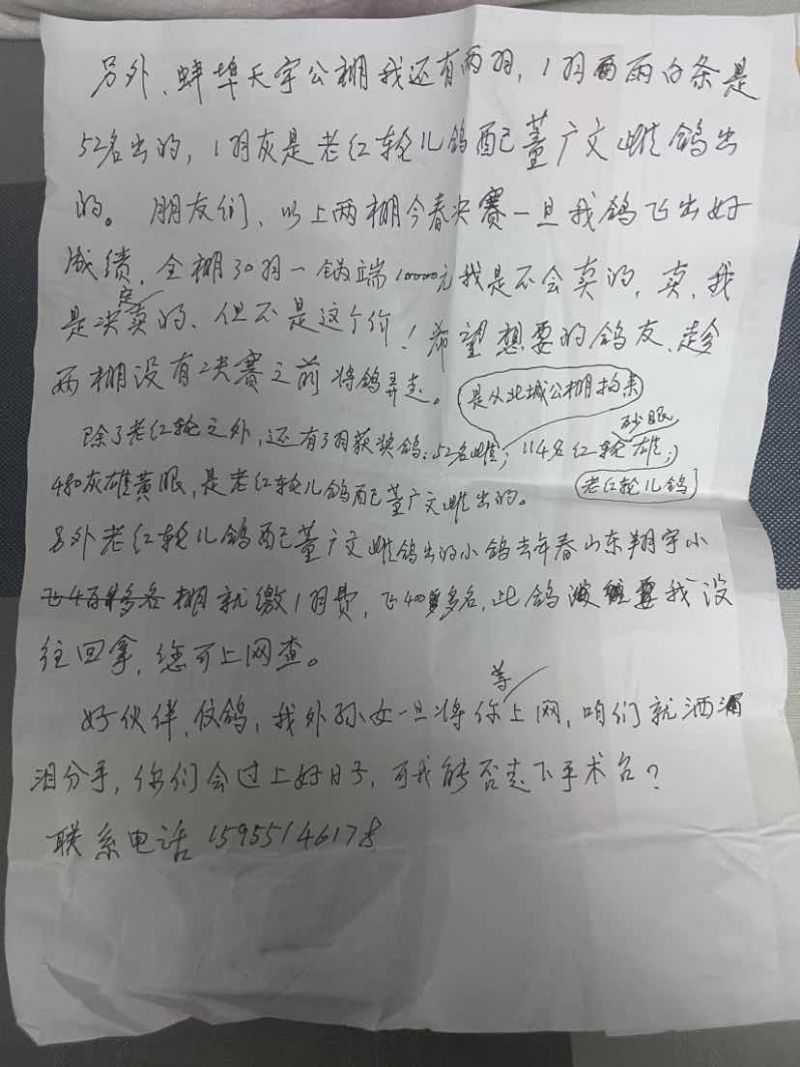 另外、蚌埠天宇公棚我还有两羽，1羽雨白条是
52名出的，1羽灰是老红轮儿鸽配董广文雌鸽出
的。朋友们、以上两棚今春决赛一旦我鸽飞出好
成绩，全棚30羽一锅端10000元我是不会卖的，卖，我
是决定卖的、但不是这个价！希望想要的鸽友、趁
两棚没有决赛之前将鸽弄走。
是从北城公棚拍来
除了老红轮之外，还有3羽获奖鸽：52名雌；114名红轮砂眼雄；
老红轮儿鸽
480灰雄黄眼，是老红轮儿鸽配董广文雌出的。
另外老红轮儿鸽配董广文雌鸽出的小鸽去年春山东翔宇小
飞4百多名棚就缴1羽费，飞400多名，此鸽我没
往回拿，您可上网查。
好伙伴，伩鸽，我外孙女一旦将你等上网，咱们就洒
泪分手，你们会过上好日子，可我能否走下手术台？
联系电话 15955146178